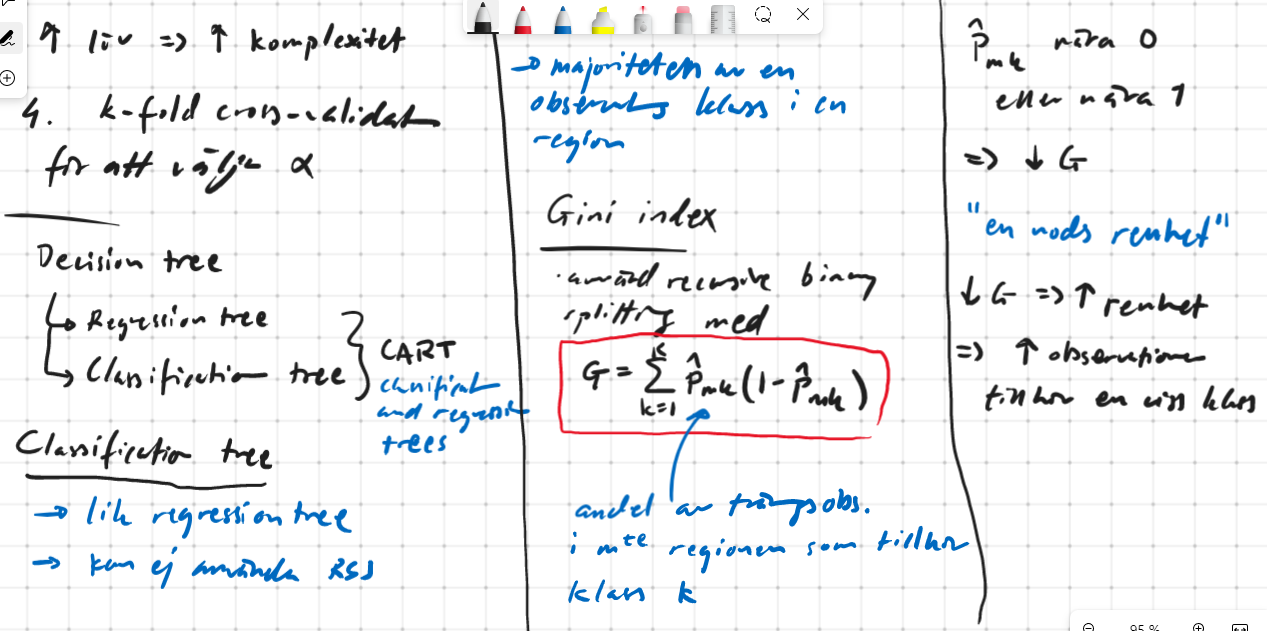 ↑ löv => ↑ komplexitet
4. k-fold cross-validat
för att välja α
Decision tree
↳ Regression tree
↳ Classification tree
CART
classificat
and regression
trees
Classification tree
→ lik regression tree
→ kan ej använda RSS
→ majoriteten av en
observations klass i en
region
Gini index
· använd recursive binary
splitting med
G = Σ_{k=1}^{K} p̂_mk (1 - p̂_mk)
andel av tränings obs.
i mte regionen som tillhör
klass k
p̂_mk nära 0
eller nära 1
=> ↓ G
"en nods renhet"
↓ G => ↑ renhet
=> ↑ observationer
tillhör en viss klass
95 %